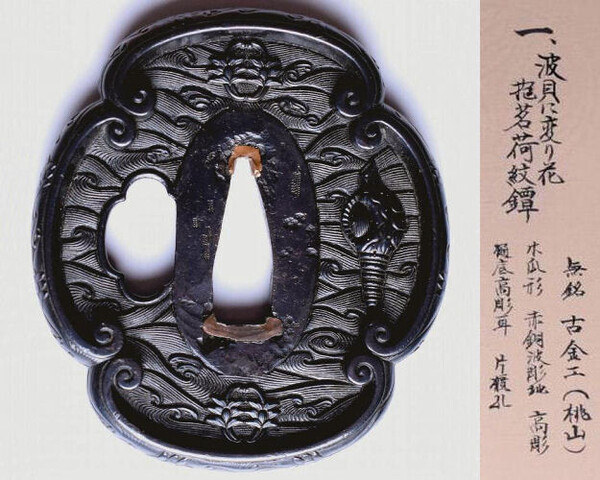 一、波貝に変り花
抱茗荷紋鐔
無銘 古金工(桃山)
木瓜形 赤銅波彫地 高彫
樋底高彫耳 片櫃孔